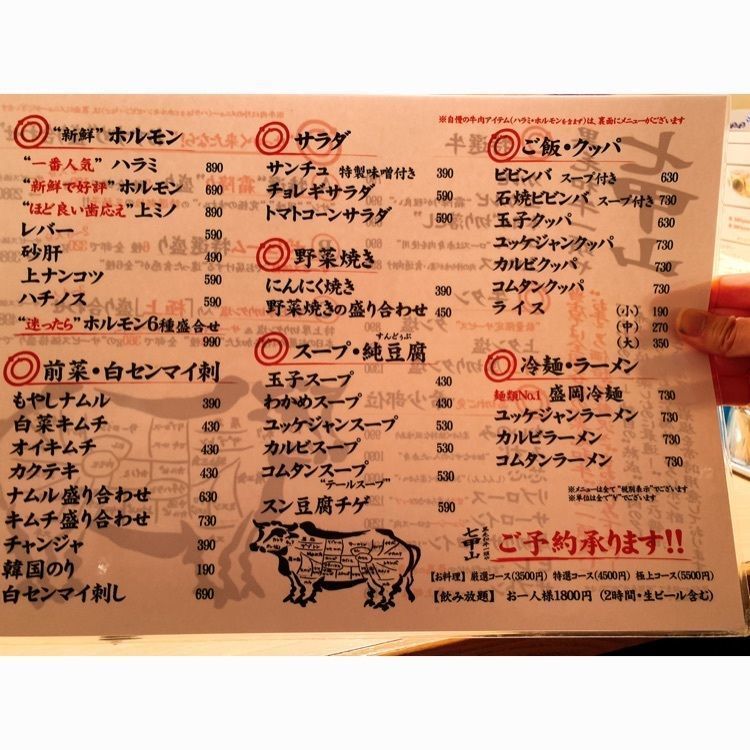 ※自慢の牛肉アイテム(ハラミ・ホルモンも含ます)は、裏面にメニューがございます
"新鮮" ホルモン
"一番人気" ハラミ 890
"新鮮で好評" ホルモン 690
"ほど良い歯応え" 上ミノ 890
レバー
砂肝 490
上ナンコツ
ハチノス
"迷ったら" ホルモン6種盛合せ
990
前菜・白センマイ刺
もやしナムル 390
白菜キムチ 430
オイキムチ 430
カクテキ 430
ナムル盛り合わせ 630
キムチ盛り合わせ 730
チャンジャ 390
韓国のり 190
白センマイ刺し 690
サラダ
サンチュ 特製味噌付き 390
チョレギサラダ 590
トマトコーンサラダ 590
野菜焼き
にんにく焼き 390
野菜焼きの盛り合わせ 450
すんどぅぶ
スープ・純豆腐
玉子スープ 430
わかめスープ 430
ユッケジャンスープ 530
カルビスープ 530
コムタンスープ 530
"テールスープ"
スン豆腐チゲ 590
ご飯・クッパ
ビビンバ スープ付き 630
石焼ビビンバ スープ付き 730
玉子クッパ 630
ユッケジャンクッパ 730
カルビクッパ 730
コムタンクッパ 730
ライス (小) 190
(中) 270
(大) 350
冷麺・ラーメン
麺類No.1 盛岡冷麺 730
ユッケジャンラーメン 730
カルビラーメン 730
コムタンラーメン 730
※メニューは全て"税別表示"でございます
※単位は全て"¥"でございます
七甲山
ご予約承ります!!
【お料理】厳選コース(3500円) 特選コース(4500円) 極上コース(5500円)
【飲み放題】 お一人様1800円 (2時間・生ビール含む)